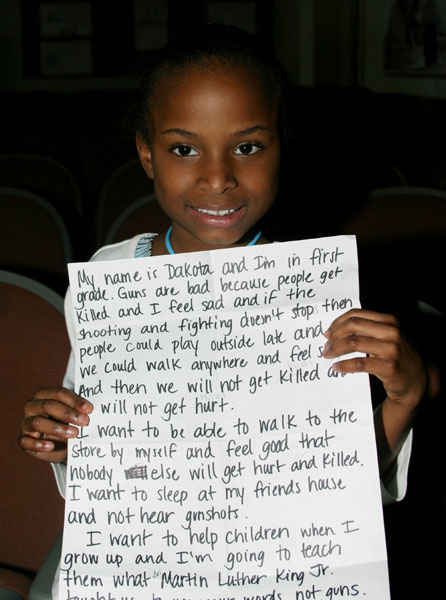 My name is Dakota and I'm in first
grade. Guns are bad because people get
killed and I feel sad and if the
shooting and fighting doesn't stop then
people could play outside late and
we could walk anywhere and feel
And then we will not get killed
will not get hurt.
I want to be able to walk to the
store by myself and feel good that
nobody else will get hurt and killed.
I want to sleep at my friends house
and not hear gunshots.
I want to help children when I
grow up and I'm going to teach
them what Martin Luther King Jr.
taught us to use your words not guns.